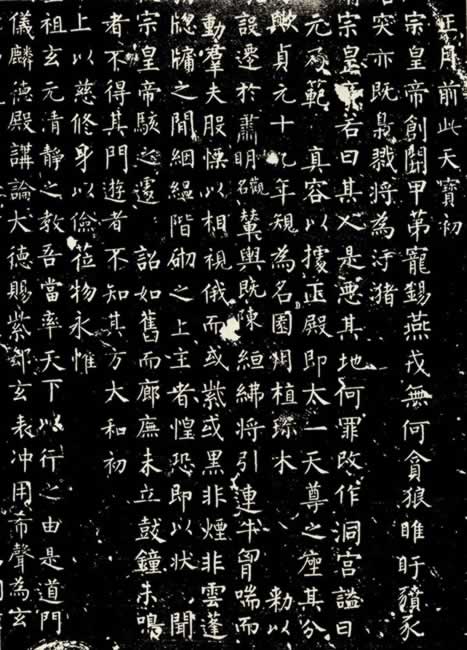 正月前此天寶初
宗皇帝創開甲第寵錫燕戎無何貪狼睢盱豶豕
突亦既梟戮將為汙猪
宗皇帝若曰其人是惡其地何罪改作洞宮謚曰
元乃範 真容以據正殿即太一天尊之座其分
歟貞元十九年規為名園用植琼木 勑以
設遷於肅明觀輦輿既陳縆紼將引連牛胷喘而
動羣夫股慄以相視俄而或紫或黑非煙非雲蓬
牕牖之間絪縕階砌之上主者惶恐即以狀 聞
宗皇帝駭之遽 詔如舊而廊廡未立鼓鐘未鳴
者不得其門遊者不知其方大和初
上以慈修身以儉莅物永惟
祖玄元清靜之教吾當率天下以行之由是道門
儀麟德殿講論大德賜紫郄玄表冲用希聲為玄